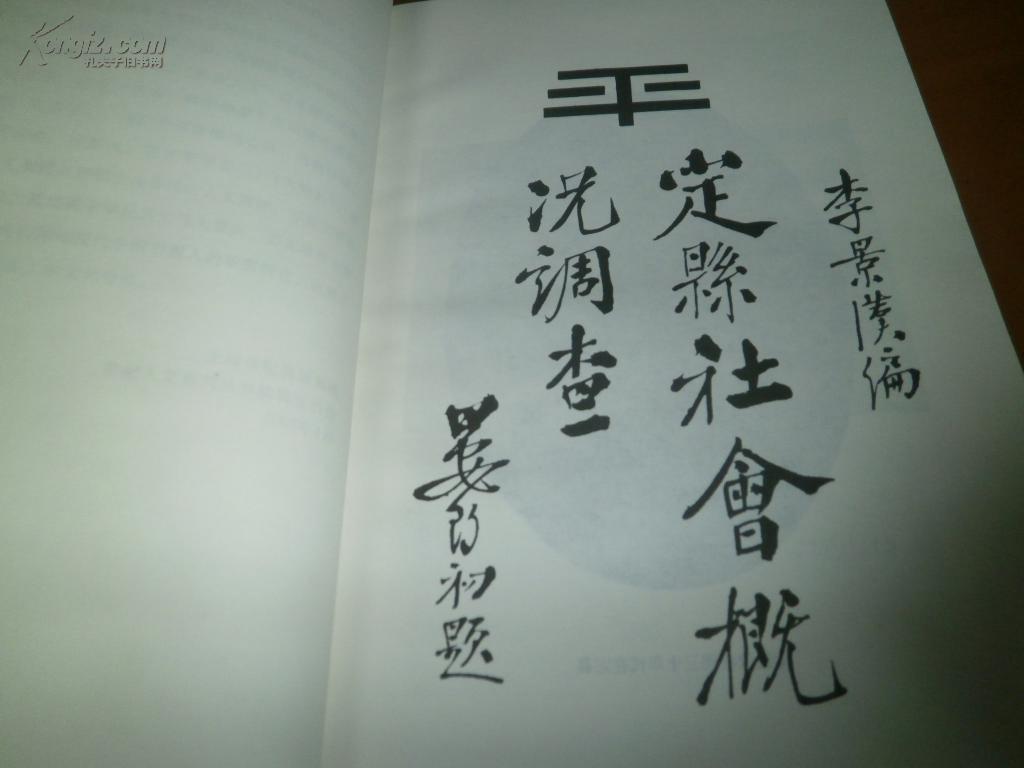 李景漢編
定縣社會概
況調查
晏陽初題
Kongfz.com
孔夫子旧书网